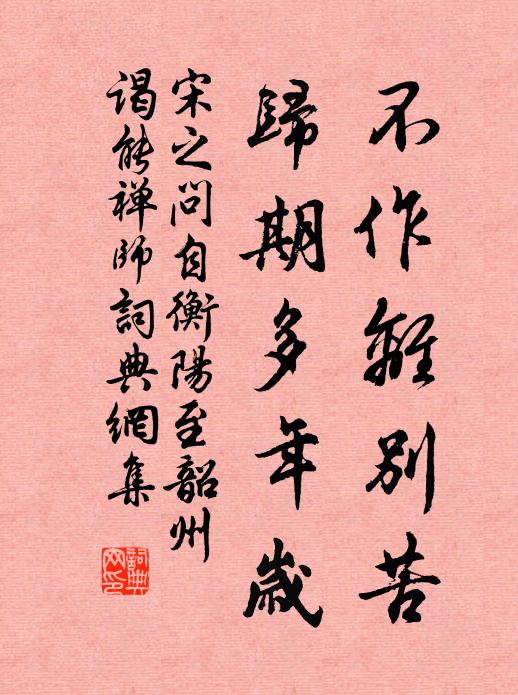 不作離別苦
歸期多年歲
宋之问自衡陽至韶州
謁能禅師詞典網集
詞典
网印